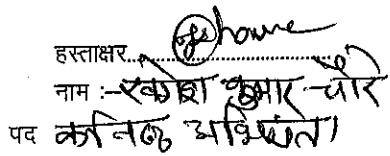 हस्ताक्षर
नाम :- कुमार चौरे
पद कनिष्ठ अभियंता